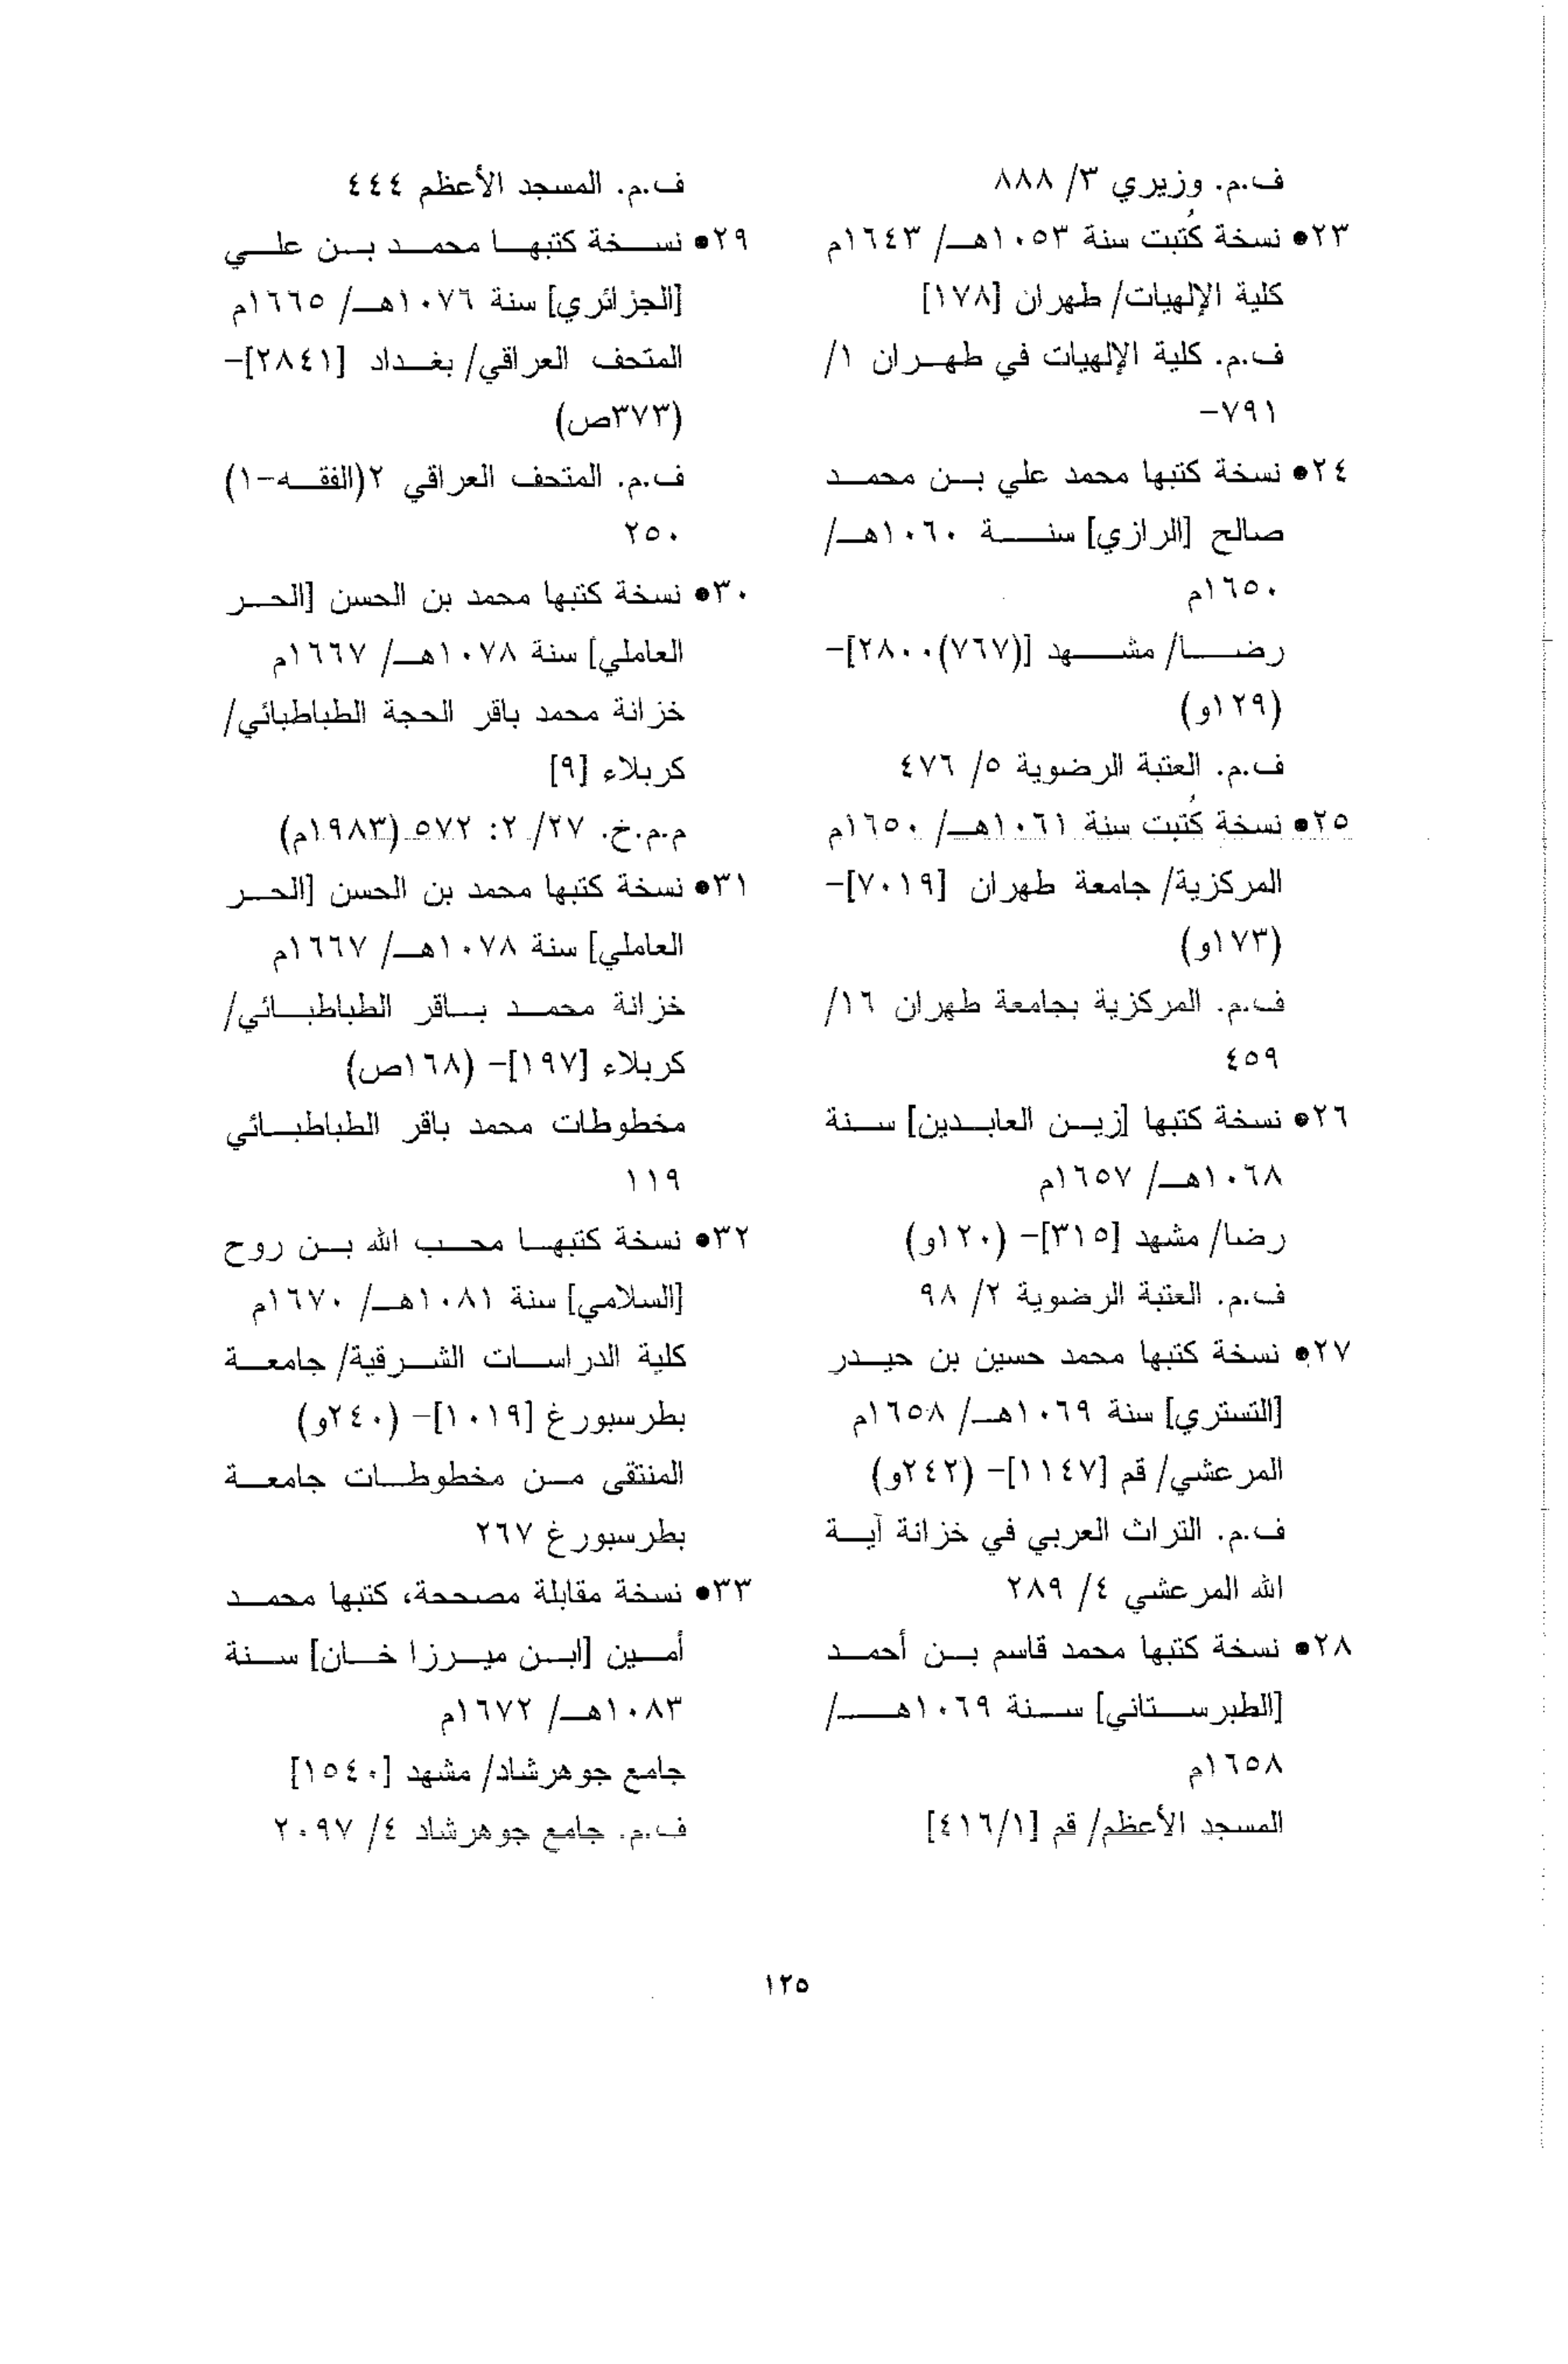 ف.م. وزيري ٣/ ٨٨٨
٢٣● نسخة كُتبت سنة ١٠٥٣هـ/ ١٦٤٣م
كلية الإلهيات/ طهران [١٧٨]
ف.م. كلية الإلهيات في طهران ١/
٧٩١–
٢٤● نسخة كتبها محمد علي بن محمد
صالح [الرازي] سنة ١٠٦٠هـ/
١٦٥٠م
رضا/ مشهد [(٧٦٧)٢٨٠٠]–
(١٢٩و)
ف.م. العتبة الرضوية ٥/ ٤٧٦
٢٥● نسخة كُتبت سنة ١٠٦١هـ/ ١٦٥٠م
المركزية/ جامعة طهران [٧٠١٩]–
(١٧٣و)
ف.م. المركزية بجامعة طهران ١٦/
٤٥٩
٢٦● نسخة كتبها [زين العابدين] سنة
١٠٦٨هـ/ ١٦٥٧م
رضا/ مشهد [٣١٥]– (١٢٠و)
ف.م. العتبة الرضوية ٢/ ٩٨
٢٧● نسخة كتبها محمد حسين بن حيدر
[التستري] سنة ١٠٦٩هـ/ ١٦٥٨م
المرعشي/ قم [١١٤٧]– (٢٤٢و)
ف.م. التراث العربي في خزانة آية
الله المرعشي ٤/ ٢٨٩
٢٨● نسخة كتبها محمد قاسم بن أحمد
[الطبرستاني] سنة ١٠٦٩هـ/
١٦٥٨م
المسجد الأعظم/ قم [٤١٦/١]
ف.م. المسجد الأعظم ٤٤٤
٢٩● نسخة كتبها محمد بن علي
[الجزائري] سنة ١٠٧٦هـ/ ١٦٦٥م
المتحف العراقي/ بغداد [٢٨٤١]–
(٣٧٣ص)
ف.م. المتحف العراقي ٢(الفقه–١)
٢٥٠
٣٠● نسخة كتبها محمد بن الحسن [الحر
العاملي] سنة ١٠٧٨هـ/ ١٦٦٧م
خزانة محمد باقر الحجة الطباطبائي/
كربلاء [٩]
م.م.خ. ٢٧/ ٢: ٥٧٢ (١٩٨٣م)
٣١● نسخة كتبها محمد بن الحسن [الحر
العاملي] سنة ١٠٧٨هـ/ ١٦٦٧م
خزانة محمد باقر الطباطبائي/
كربلاء [١٩٧]– (١٦٨ص)
مخطوطات محمد باقر الطباطبائي
١١٩
٣٢● نسخة كتبها محب الله بن روح
[السلامي] سنة ١٠٨١هـ/ ١٦٧٠م
كلية الدراسات الشرقية/ جامعة
بطرسبورغ [١٠١٩]– (٢٤٠و)
المنتقى من مخطوطات جامعة
بطرسبورغ ٢٦٧
٣٣● نسخة مقابلة مصححة، كتبها محمد
أمين [ابن ميرزا خان] سنة
١٠٨٣هـ/ ١٦٧٢م
جامع جوهرشاد/ مشهد [١٥٤٠]
ف.م. جامع جوهرشاد ٤/ ٢٠٩٧
١٢٥